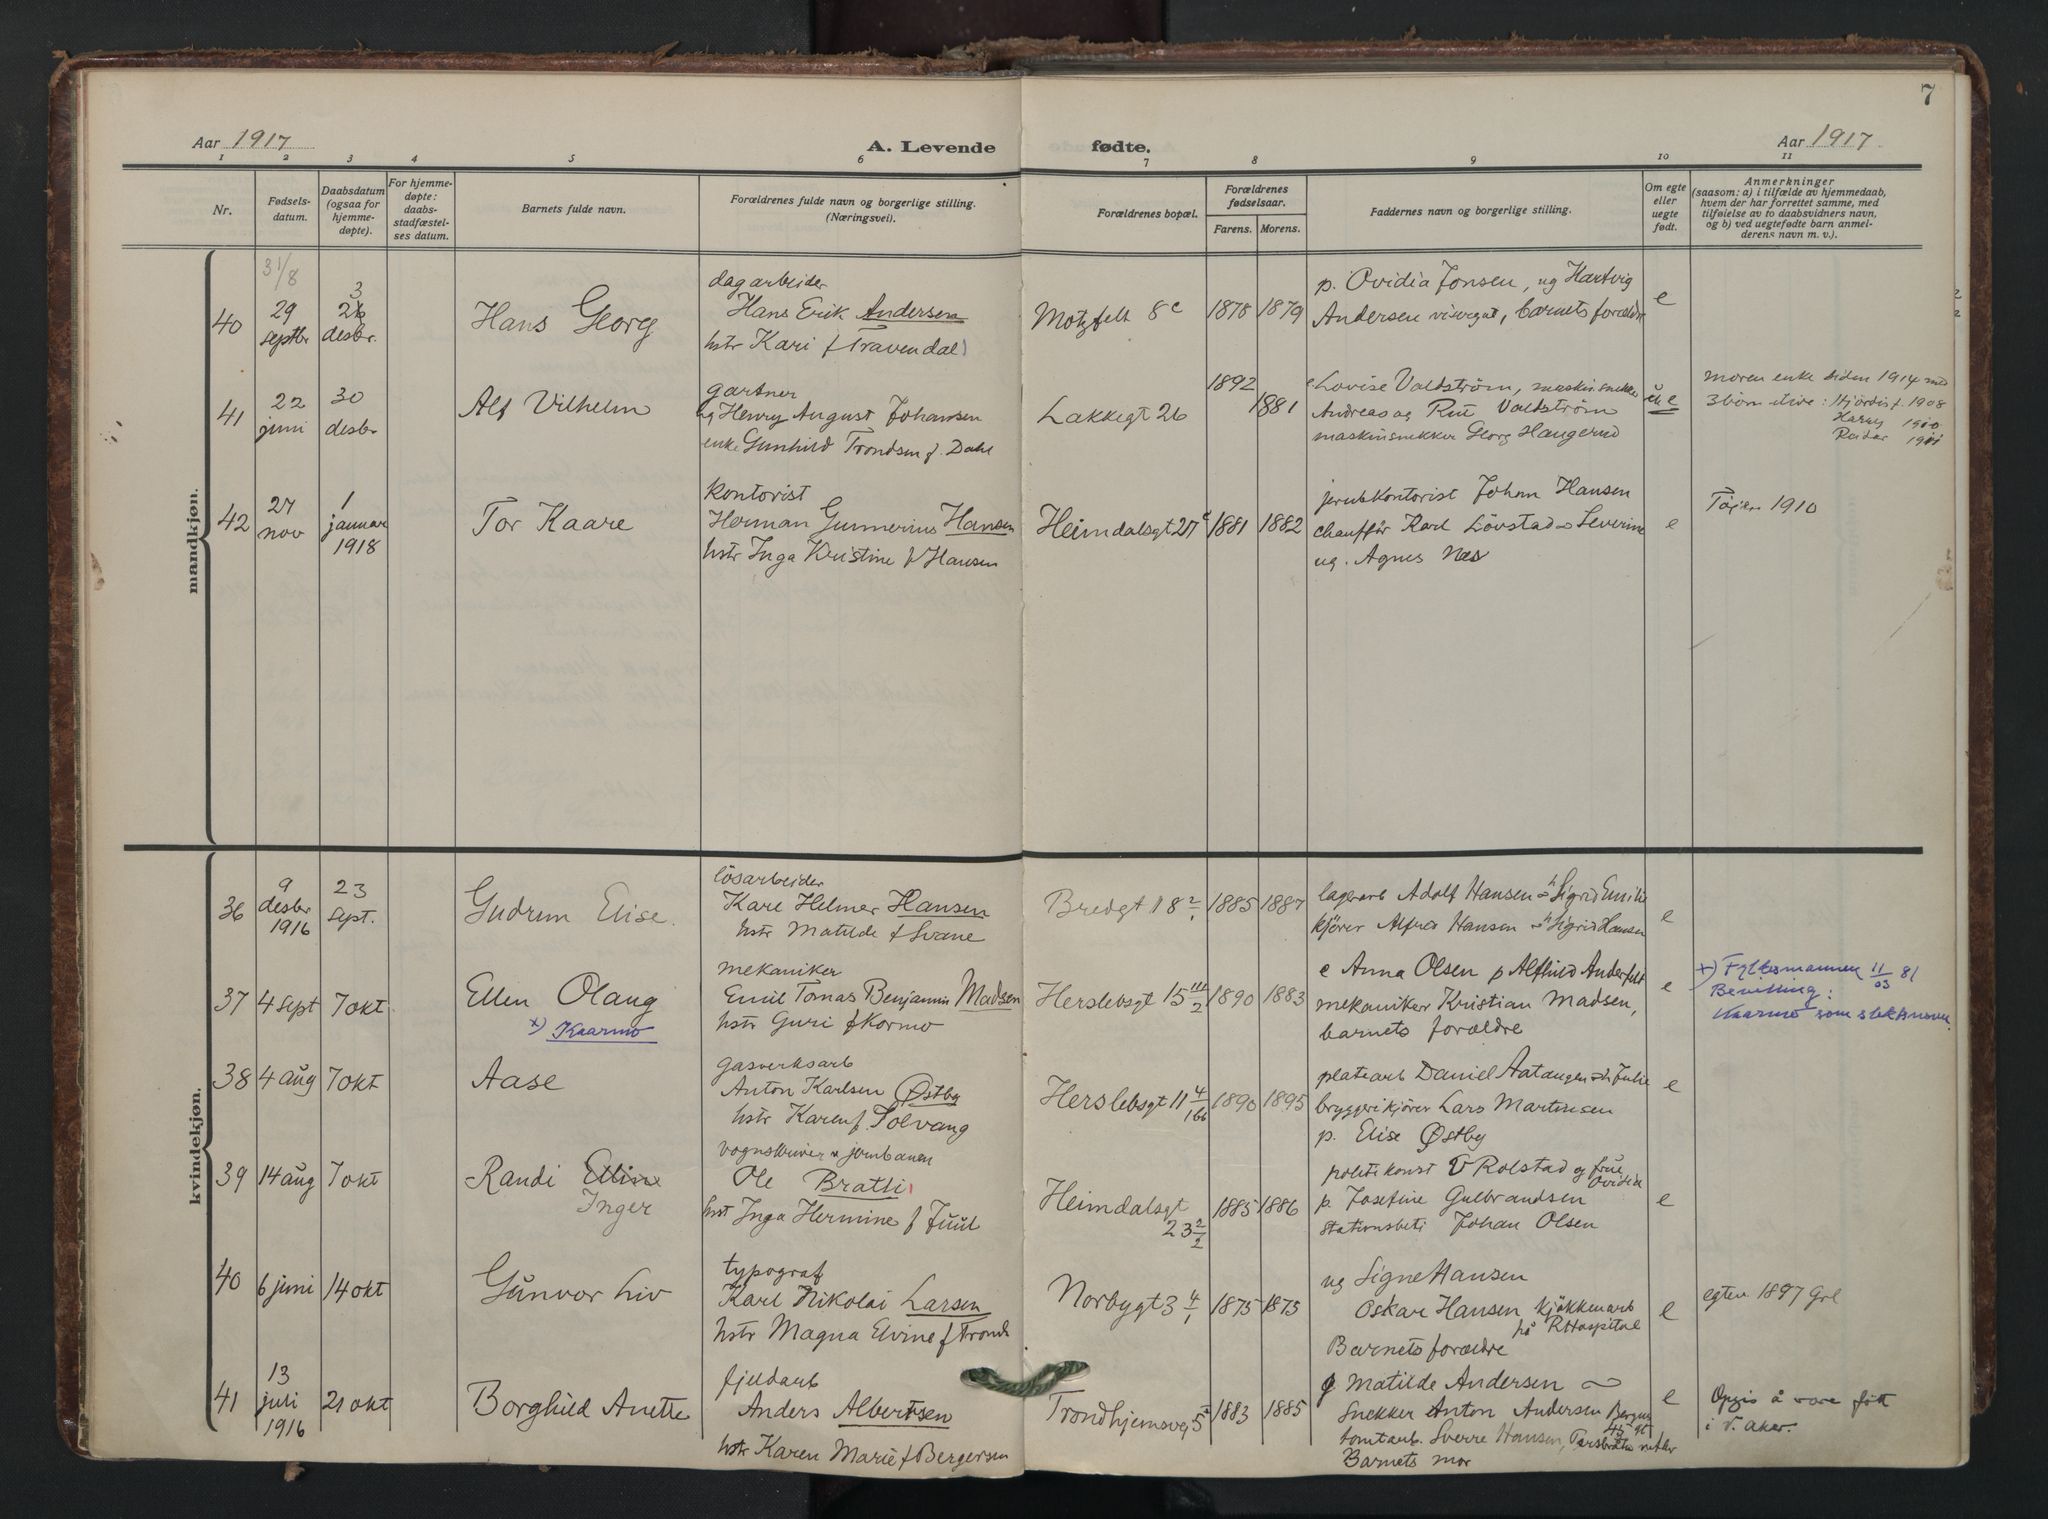 7
Aar 1917
A. Levende fødte.
Aar 1917.
1 2 3 4 5 6 7 8 9 10 11
Nr.
Fødsels-
datum.
Daabsdatum
(ogsaa for
hjemme-
døpte).
For hjemme-
døpte:
daabs-
stadfæstel-
ses datum.
Barnets fulde navn.
Forældrenes fulde navn og borgerlige stilling.
(Næringsvei).
Forældrenes bopæl.
Forældrenes
fødselsaar.
Farens. Morens.
Faddernes navn og borgerlige stilling.
Om egte
eller
uegte
født.
Anmerkninger
(saasom: a) i tilfælde av hjemmedaab,
hvem der har forrettet samme, med
tilføielse av to daabsvidners navn,
og b) ved uegtefødte barn anmel-
derens navn m. v.).
mandkjøn.
31/8
40
29
septbr
3
desbr.
Hans Georg
dagarbeider
Hans Erik Andersen
hstr Kari f Travendal
Motzfelt 8c
1878 1879
p. Ovidia Jonsen, ug Hartvig
Andersen visergut, barnets forældre
e
41
22
juni
30
desbr
Alf Vilhelm
gartner
ug Henry August Johansen
enke Gunhild Trondsen f. Dahl
Lakkegt 26
1892
1881
e Lovise Valdström, maskinsnekker
Andreas og Rut Valdström
maskinsnekker Georg Haugerud
moren enke siden 1914 med
3 börn ilive: Hjördis f. 1908
Harry 1910
Reidar 1911
42
27
nov
1
januar
1918
Tor Kaare
kontorist
Herman Gunnerius Hansen
hstr Inga Kristine f Hansen
Heimdalsgt 27c
1881 1882
jernbkontorist Johan Hansen
chauffør Karl Lövstad Severine
ug. Agnes Næs
e
Töien 1910
kvindekjøn.
36
9
desbr
1916
23
sept.
Gudrun Elise.
lösarbeider
Karl Helmer Hansen
hstr Matilde f Svane
Bredgt 18 2/1
1885 1887
lagerarb Adolf Hansen h Sigrid Emilie
kjører Alfred Hansen h Sigrid Hansen
e
37
4 sept
7 okt
Ellen Olaug
x) Kaarmo
mekaniker
Emil Tomas Benjamin Madsen
hstr Guri f Kormo
Herslebsgt 15 III/2
1890 1883
e Anna Olsen p Alfhild Anderfelt
mekaniker Kristian Madsen,
barnets forældre
e
x) Fylkesmannen 11/03 81
Bevilling:
Kaarmo som slektsnavn.
38
4 aug
7 okt
Aase
gasverksarb
Anton Karlsen Østby
hstr Karen f. Solvang
Herslebsgt 11 4/166
1890 1895
platearb Daniel Aatangen h Julie
bryggerikjører Lars Martinsen
p. Elise Østby
e
39
14 aug
7 okt
Randi Elline
Inger
vognskriver v jernbanen
Ole Bratli
hstr Inga Hermine f Juul
Heimdalsgt
23 2/2
1885 1886
politikonst V Rolstad og frue
Ovidia
p. Josefine Gulbrandsen
stationsbetj Johan Olsen
e
40
6 juni
14 okt
Gunvor Liv
typograf
Karl Nikolai Larsen
hstr Magna Elvine f Tronds
Norbygt 3 4/1
1875 1875
ug Signe Hansen
Oskar Hansen kjøkkenarb
på R Hospital
Barnets forældre
e
egtev 1897 Grl
41
13
juli
1916
21 okt
Borghild Anette
fjeldarb
Anders Albertsen
hstr Karen Marie f Bergersen
Trondhjemsvg 5
1883 1885
g Matilde Andersen
Snekker Anton Andersen
tomtarb. Sverre Hansen,
Barnets mor
e
Opgis å være født
i V. Aker.